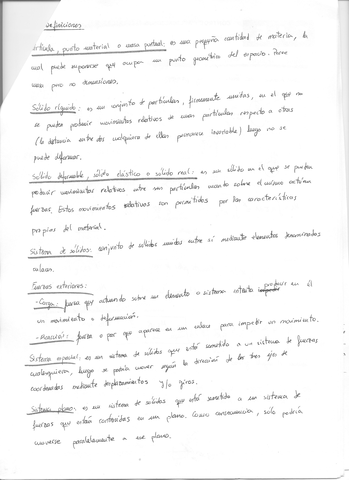 Definiciones
Partícula, punto material o masa puntual: es una pequeña cantidad de materia, la
cual puede suponerse que ocupa un punto geométrico del espacio. Tiene
masa pero no dimensiones.
Sólido rígido: es un conjunto de partículas, firmemente unidas, en el que no
se pueden producir movimientos relativos de unas partículas respecto a otras
(la distancia entre dos cualquiera de ellas permanece invariable) luego no se
puede deformar.
Sólido deformable, sólido elástico o sólido real: es un sólido en el que se pueden
producir movimientos relativos entre sus partículas cuando sobre el mismo actúan
fuerzas. Estos movimientos relativos son permitidos por las características
propias del material.
Sistema de sólidos: conjunto de sólidos unidos entre sí mediante elementos denominados
enlaces.
Fuerzas exteriores:
- Carga: fuerza que actuando sobre un elemento o sistema intenta producir en él
un movimiento o deformación.
- Reacción: fuerza o par que aparece en un enlace para impedir un movimiento.
Sistema espacial: es un sistema de sólidos que está sometido a un sistema de fuerzas
cualesquiera, luego se podría mover según la dirección de los tres ejes de
coordenadas mediante desplazamientos y/o giros.
Sistema plano: es un sistema de sólidos que está sometido a un sistema de
fuerzas que están contenidas en un plano. Como consecuencia, solo podría
moverse paralelamente a ese plano.